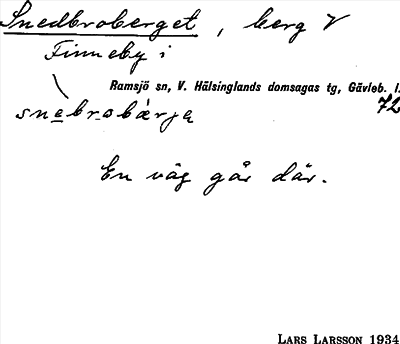 Snedbroberget, berg V
Finneby i
Ramsjö sn, V. Hälsinglands domsagas tg, Gävleb. l.
72
snebrobärja
En väg går där.
LARS LARSSON 1934